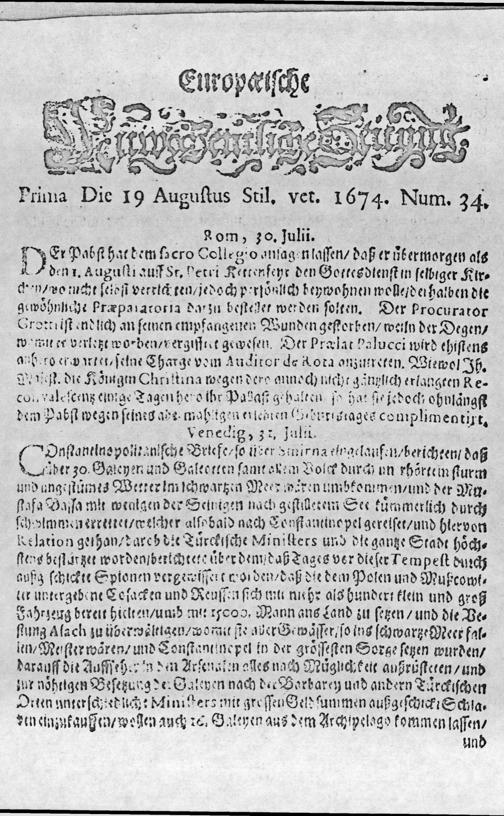 Europæische
Prima Die 19 Augustus Stil. vet. 1674. Num. 34.
Rom, 30. Julii.
DEr Pabst hat dem sacro Collegio ansagen lassen/ daß er übermorgen als
den 1. Augusti auff St. Petri Kettenfeyr den Gottesdienst in selbiger Kir-
chen/ wo nicht selbst verrichten/ jedoch persönlich beywohnen wolle/ derhalben die
gewöhnliche Præparatoria darzu bestellet werden solten. Der Procurator
Grotti ist endlich an seinen empfangenen Wunden gestorben/ weiln der Degen/
womit er verletzt worden/ vergifftet gewesen. Der Prælat Palucci wird ehistens
anhero erwartet/ seine Charge vom Auditor de Rota anzutreten. Wiewol Ih.
Majest. die Königin Christina wegen dero annoch nicht gänzlich erlangten Re-
convalescentz einige Tagen hero ihr Pallast gehalten/ so hat sie jedoch ohnlängst
dem Pabst wegen seines abermahligen Geburtstages complimentirt.
Venedig, 31. Julii.
COnstantinopolitanische Brieffe/ so über Smirna eingelauffen/ berichten/ daß
über 30. Galeyen und Galeotten samt allem Volck durch unerhörten sturm
und ungestümes Wetter im schwartzen Meer wären umbkommen/ und der Mu-
stafa Bassa mit wenigen der Seinigen nach gestilletem See kümmerlich durch
schwimmen errettet/ welcher alsobald nach Constantinopel gereiset/ und hiervon
Relation gethan/ dardurch die Türckische Ministers und die gantze Stadt höch-
stens bestürtzet worden/ berichtete über dem/ daß Tages vor dieser Tempest durch
außgeschickte Spionen vergewissert worden/ daß die dem Polen und Mußcowi-
ter untergebene Cosacken und Reussen sich mit mehr als hundert klein und groß
Fahrzeug bereit hielten/ umb mit 15000. Mann ans Land zu setzen/ und die Ve-
stung Alach zu überwältigen/ womit sie aber Gewässer/ so ins schwartze Meer fal-
len/ Meister wären/ und Constantinopel in der grössesten Sorge setzen wurden/
darauff die Auffseher in dem Arsenalen alles nach Müglichkeit außrüsteten/ und
zur nöhtigen Besetzung der Galeyen nach der Barbarey und andern Türckischen
Orten unterschiedliche Ministers mit grossen Geldsummen außgeschickt Scla-
ven einzukauffen/ wollen auch 26. Galeyen aus dem Archipelago kommen lassen/
und